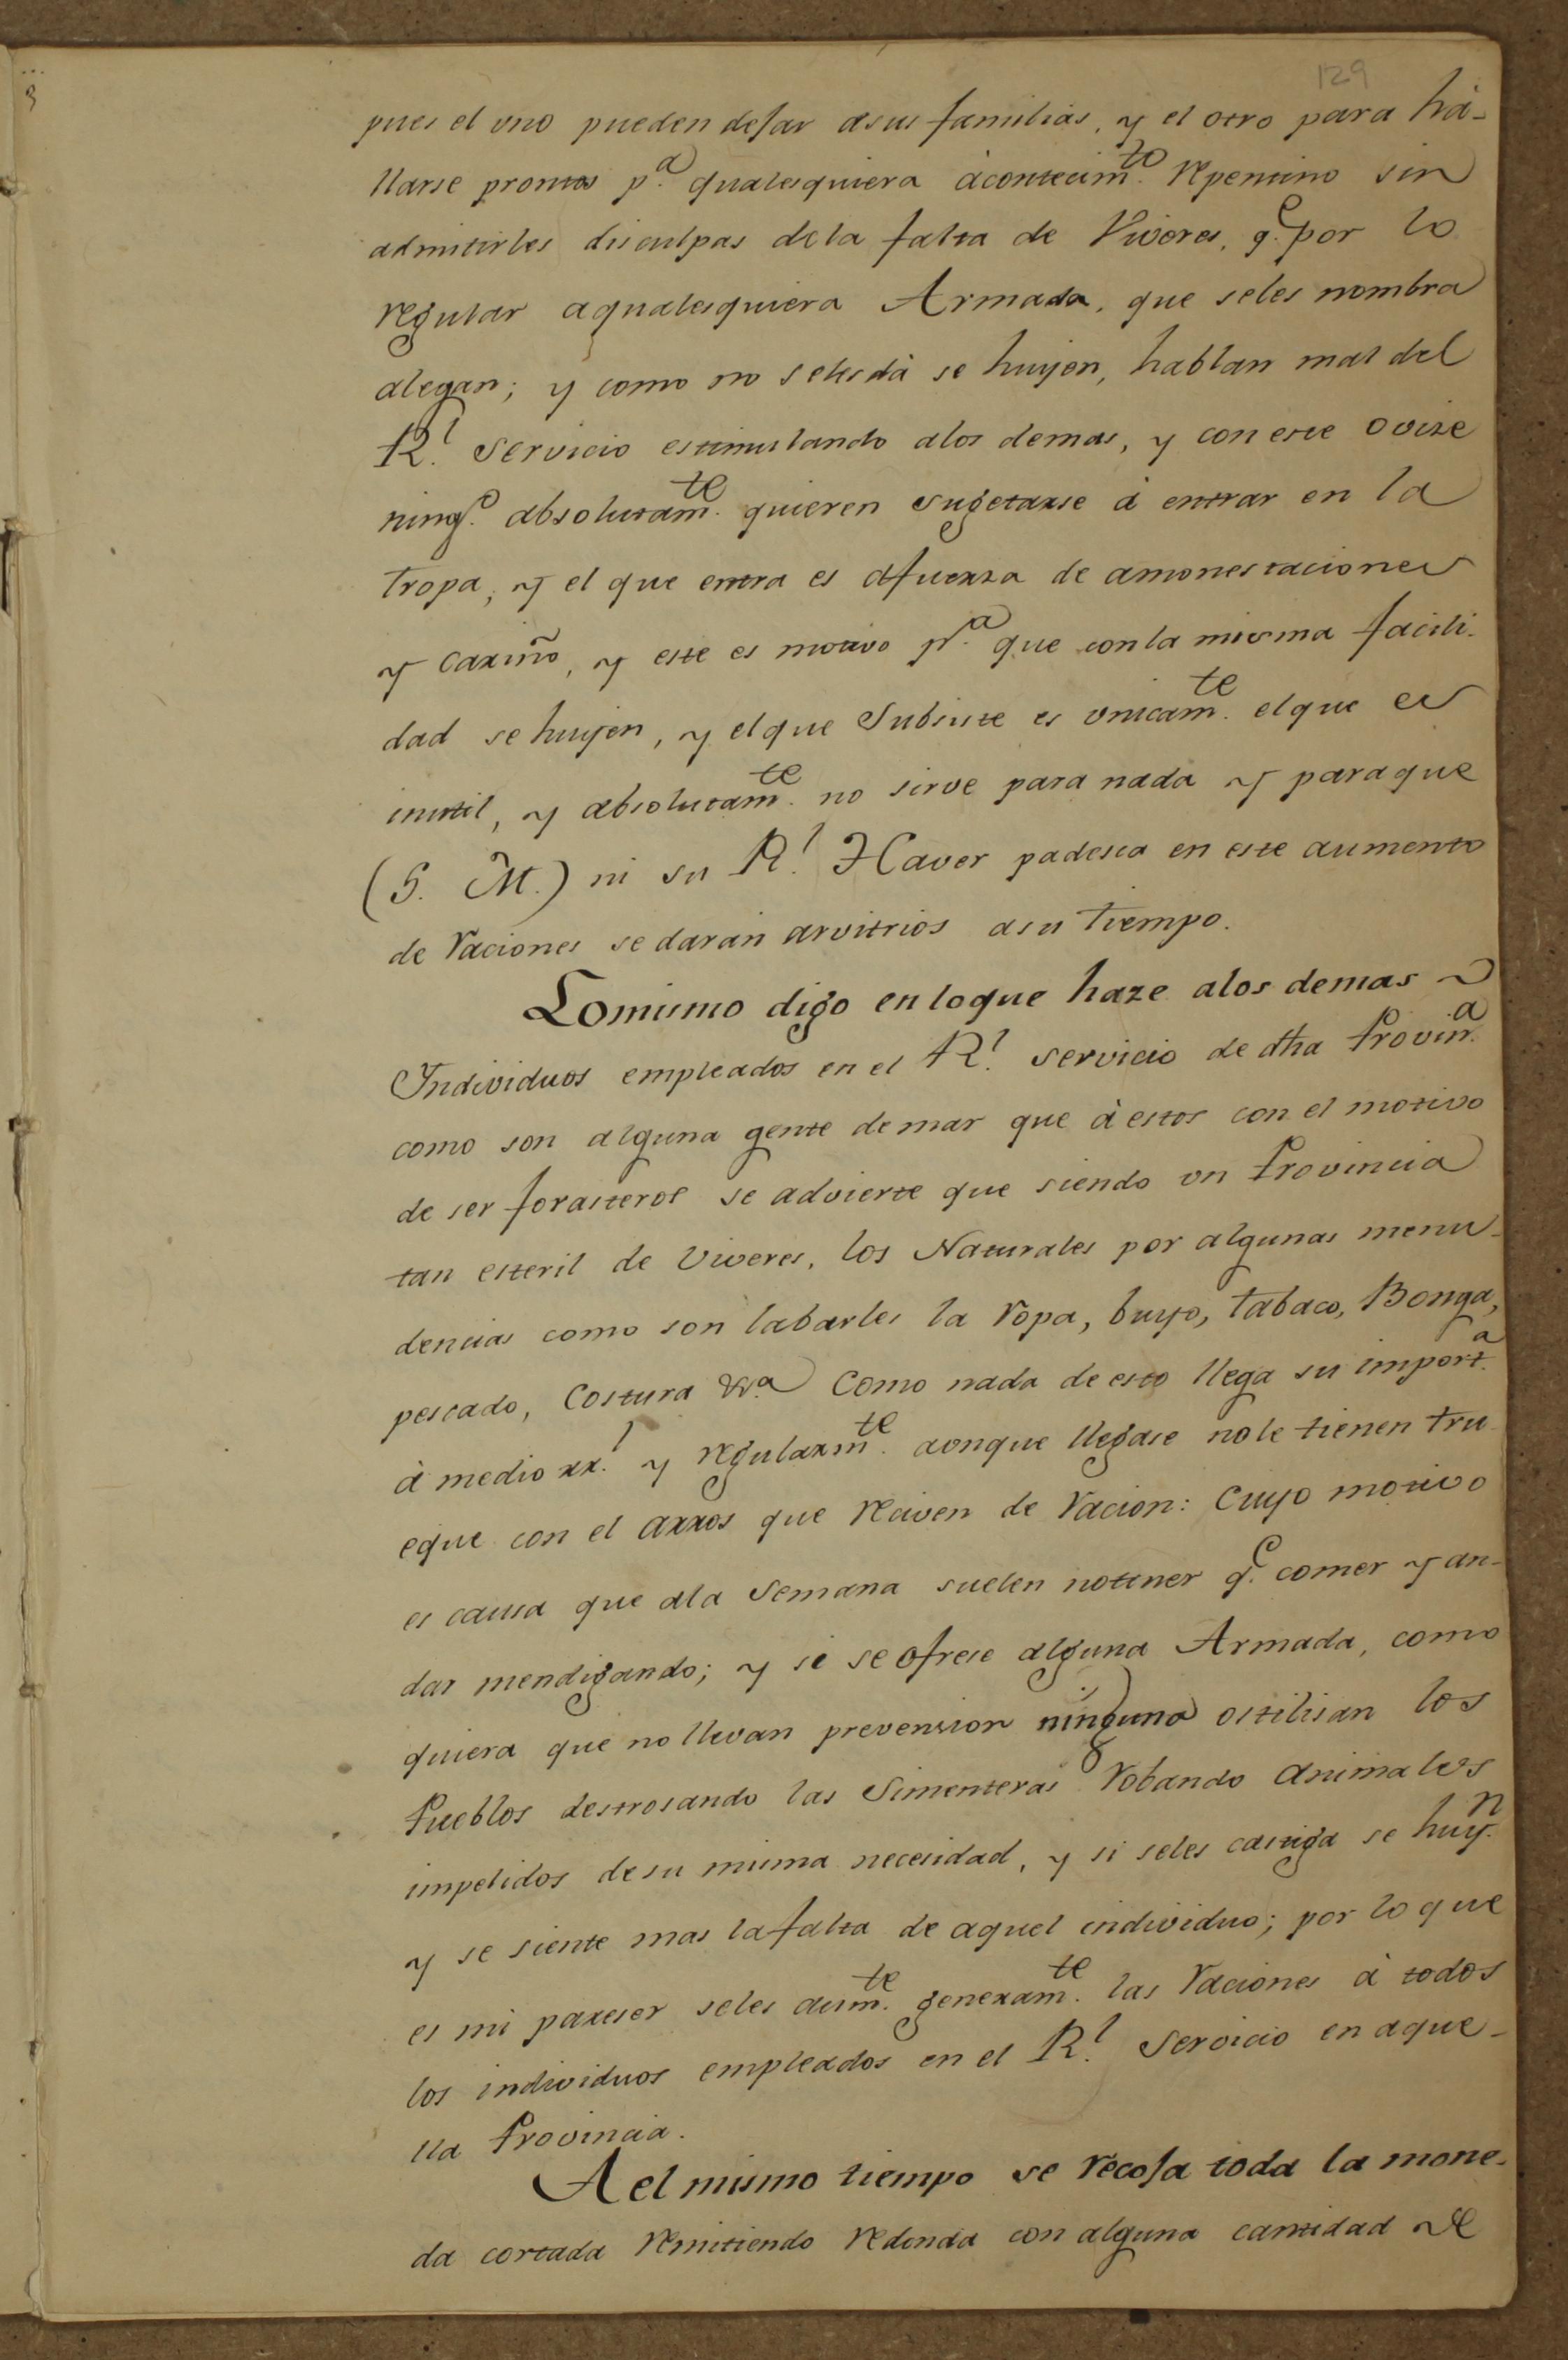 129
pues el vno pueden dejar asus familias, y el otro para há-
llarse promtos p.ª qualesquiera àcontecim.to repentino sin
admitirles disculpas dela falta de Viveres, q.e por lo
regular aqualesquiera Armada, que seles nombra
alegan; y como no selesdà se huyen, hablan mal del
R.l Servicio estimulando alos demas, y con este ovise
ning.o absolutam.te quieren sugetarse à entrar en la
tropa, y el que entra es afuerza de amonestaciones
y cariño, y este es motivo p.ª que con la misma facili-
dad se huyen, y el que Subsiste es vnicam.te el que es
inutil, y absolutam.te no sirve para nada y paraque
(S. M.) ni su R.l Haver padesca en este aumento
de raciones se daràn arvitrios asu tiempo.
Lomismo digo enloque haze alos demas
Individuos empleados en el R.l servicio de dha Provin.ª
como son alguna gente demar que à estos con el motivo
de ser forasteros se advierte que siendo vn Provincia
tan esteril de Viveres, los Naturales por algunas menu-
dencias como son labarles la ropa, buyo, tabaco, Bonga,
pescado, Costura &.ª Como nada de esto llega su import.ª
à medio rr.l y regularm.te aonque llegase nole tienen tru-
eque con el arros que reciven de racion: Cuyo motivo
es causa que ala Semana suelen notener q.e comer y an-
dar mendigando; y si se ofrese alguna Armada, como
quiera que no llevan prevension ninguna ostilisan los
Pueblos destrosando las Simenteras robando animales
impelidos de su misma necesidad, y si seles castiga se huy.n
y se siente mas lafalta de aquel individuo; por loque
es mi pareser seles aum.te generam.te las raciones à todos
los individuos empleados en el R.l Servicio en aque-
lla Provincia.
A el mismo tiempo se recoja toda la mone-
da cortada remitiendo redonda con alguna cantidad de